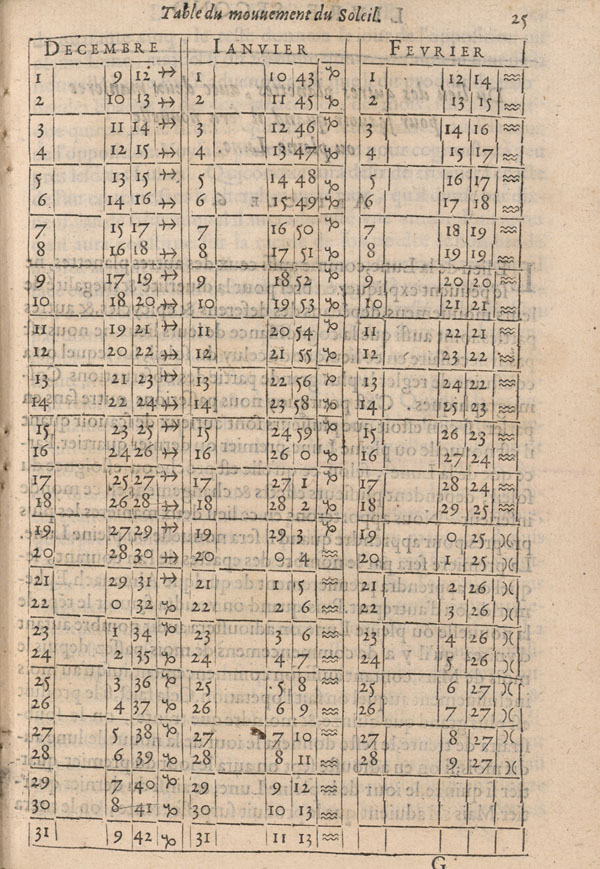 Table du mouuement du Soleil. 25
DECEMBRE IANVIER FEVRIER
1 9 12 ♐ 1 10 43 ♑ 1 12 14 ♒
2 10 13 ♐ 2 11 45 ♑ 2 13 15 ♒
3 11 14 ♐ 3 12 46 ♑ 3 14 16 ♒
4 12 15 ♐ 4 13 47 ♑ 4 15 17 ♒
5 13 15 ♐ 5 14 48 ♑ 5 16 17 ♒
6 14 16 ♐ 6 15 49 ♑ 6 17 18 ♒
7 15 17 ♐ 7 16 50 ♑ 7 18 19 ♒
8 16 18 ♐ 8 17 51 ♑ 8 19 19 ♒
9 17 19 ♐ 9 18 52 ♑ 9 20 20 ♒
10 18 20 ♐ 10 19 53 ♑ 10 21 21 ♒
11 19 21 ♐ 11 20 54 ♑ 11 22 21 ♒
12 20 22 ♐ 12 21 55 ♑ 12 23 22 ♒
13 21 23 ♐ 13 22 56 ♑ 13 24 22 ♒
14 22 24 ♐ 14 23 58 ♑ 14 25 23 ♒
15 23 25 ♐ 15 24 59 ♑ 15 26 23 ♒
16 24 26 ♐ 16 26 0 ♑ 16 27 24 ♒
17 25 27 ♐ 17 27 1 ♑ 17 28 24 ♒
18 26 28 ♐ 18 28 2 ♑ 18 29 25 ♒
19 27 29 ♐ 19 29 3 ♑ 19 0 25 ♓
20 28 30 ♐ 20 0 4 ♒ 20 1 25 ♓
21 29 31 ♐ 21 1 5 ♒ 21 2 26 ♓
22 0 32 ♑ 22 2 6 ♒ 22 3 26 ♓
23 1 34 ♑ 23 3 6 ♒ 23 4 26 ♓
24 2 35 ♑ 24 4 7 ♒ 24 5 26 ♓
25 3 36 ♑ 25 5 8 ♒ 25 6 27 ♓
26 4 37 ♑ 26 6 9 ♒ 26 7 27 ♓
27 5 38 ♑ 27 7 10 ♒ 27 8 27 ♓
28 6 39 ♑ 28 8 11 ♒ 28 9 27 ♓
29 7 40 ♑ 29 9 12 ♒
30 8 41 ♑ 30 10 13 ♒
31 9 42 ♑ 31 11 13 ♒
G